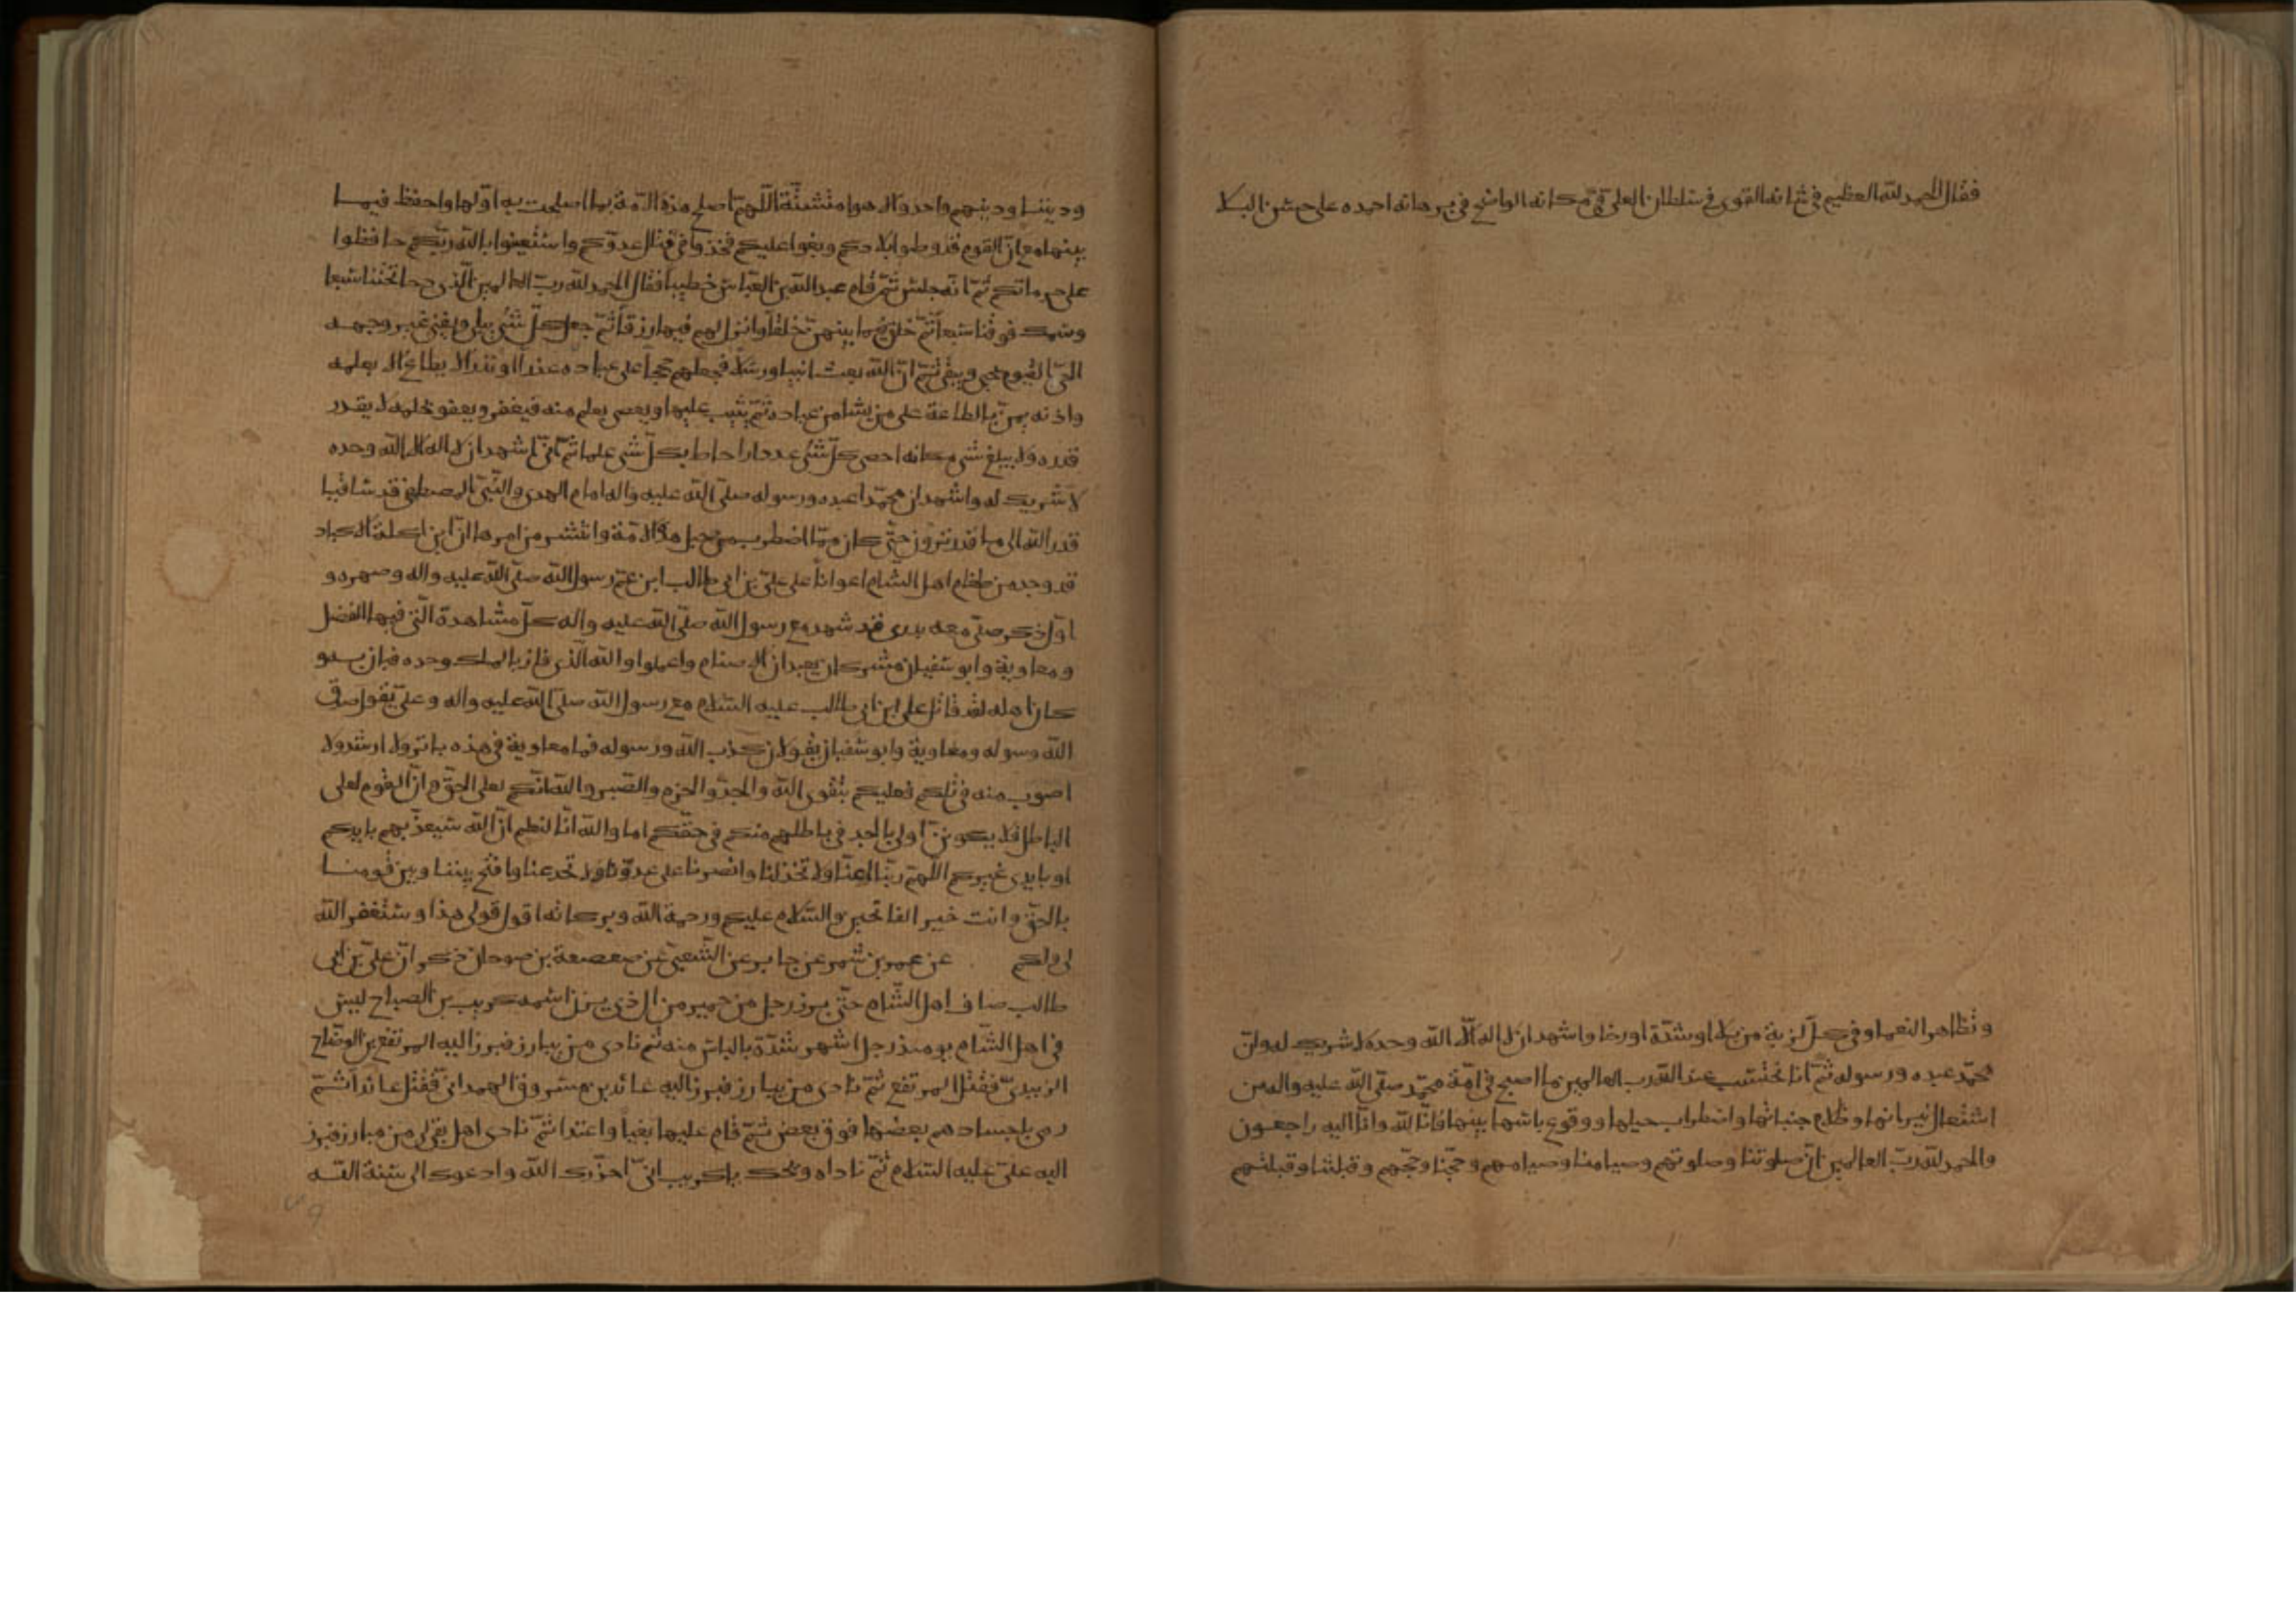 فقال الحمد لله العظيم في شانه القوى في سلطانه العلى في مكانه الواضح في برهانه احمده على حسن البلا
و تظاهر النعما وفي كل لزبة من بلا او شدة او رخا واشهد ان لا اله الا الله وحده لا شريك له وان
محمد عبده ورسوله ثم انا نحتسب عند الله رب العالمين ما اصبح في امة محمد صلى الله عليه واله من
اشتعال نيرانها وظلام جنباتها واضطراب حبلها ووقوع باسها بينها فانا لله وانا اليه راجعون
والحمد لله رب العالمين ان صلوتنا وصلوتهم وصيامنا وصيامهم وحجنا وحجهم وقبلتنا وقبلتهم
وديننا ودينهم واحد والاهوا متشتتة اللهم اصلح هذه الامة بما اصلحت به اولها واحفظ فيما
بينها مع ان القوم قد وطوا بلادكم وبغوا عليكم فخذوا في قتال عدوكم واستعينوا بالله ربكم حافظوا
على حرماتكم ثم انه جلس ثم قام عبد الله بن العباس خطيبا فقال الحمد لله رب العالمين الذي دحا تحتنا سبعا
وسمك فوقنا سبعا ثم خلق فيما بينهن خلقا وانزل لهم فيها رزقا ثم جعل كل شئ يبلى ويفنى غير وجهه
الحى القيوم يحيى ويبقى ثم ان الله بعث انبيا ورسلا فجعلهم حججا على عباده عذرا او نذرا لا يطاع الا بعلمه
واذنه يمن بالطاعة على من يشا من عباده ثم يثيب عليها ويعصى بعلم منه فيغفر ويعفو بحلمه لا يقدر
قدره ولا يبلغ شى مكانه احصى كل شئ عددا واحاط بكل شى علما ثم انى اشهد ان لا اله الا الله وحده
لا شريك له واشهد ان محمدا عبده ورسوله صلى الله عليه واله امام الهدى والنبى المصطفى قد ساقنا
قدر الله الى ما قد ترون حتى كان مما اضطرب من حبل هذه الامة وانتشر من امرها ان ابن اكلة الاكباد
قد وجد من طغام اهل الشام اعوانا على على بن ابى طالب ابن عم رسول الله صلى الله عليه واله وصهره و
اول ذكر صلى معه بدرى قد شهد مع رسول الله صلى الله عليه واله كل مشاهده التى فيها الفضل
ومعاوية وابو سفيان مشركان يعبدان الاصنام واعملوا والله الذي فاز بالملك وحده فبان به و
كان اهله لقد قاتل على ابن ابى طالب عليه السلام مع رسول الله صلى الله عليه واله وعلى يقول صدق
الله وسوله ومعاوية وابو سفيان يقولان كذب الله ورسوله فما معاوية في هذه بابر ولا ارشد ولا
اصوب منه في تلكم فعليكم بتقوى الله والجد والحزم والصبر والله انكم لعلى الحق وان القوم لعلى
الباطل فلا يكونن اولى بالجد في باطلهم منكم في حقكم اما والله انا لنعلم ان الله سيعذبهم بايديكم
او بايدى غيركم اللهم ربنا اعنا ولا تخذلنا وانصرنا على عدونا ولا تخدعنا وافتح بيننا وبين قومنا
بالحق وانت خير الفاتحين والسلام عليكم ورحمة الله وبركاته اقول قولى هذا وستغفر الله
لى ولكم عن عمر بن شمر عن جابر عن الشعبى عن صعصعة بن صوحان ذكر ان على بن ابى
طالب صاف اهل الشام حتى برز رجل من حمير من ال ذى يزن اسمه كريب بن الصباح ليس
في اهل الشام يومئذ رجل اشهر شدة بالباس منه ثم نادى من يبارز فبرز اليه المرتفع بن الوضاح
الزبيدى فقتل المرتفع ثم نادى من يبارز فبرز اليه عائد بن مسروق الهمدانى فقتل عائدا ثم
رمى باجسادهم بعضها فوق بعض ثم قام عليها بغيا واعتدا ثم نادى اهل بقى لى من مبارز فبرز
اليه على عليه السلام ثم ناداه ويحك يا كريب انى احذرك الله وادعوك الى سنة الله